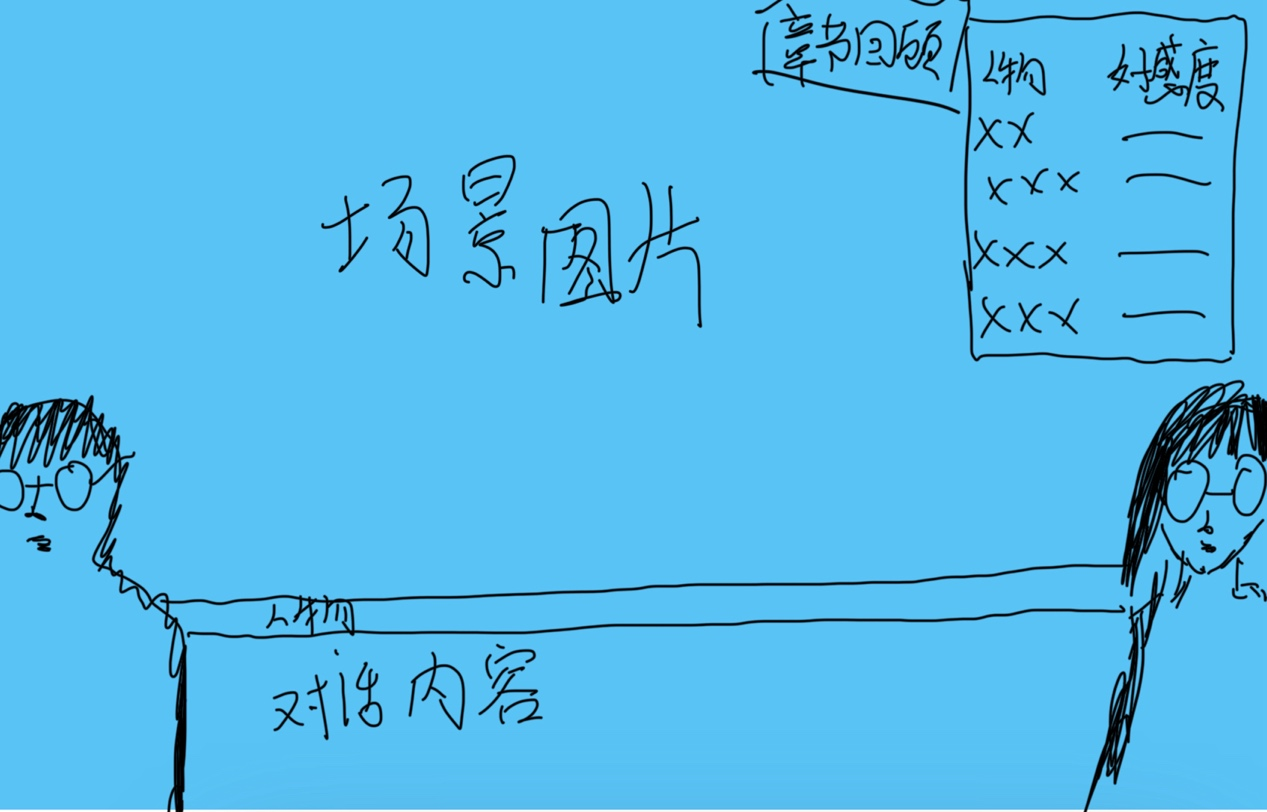 章节回顾
人物 好感度
XX
XXX
XXX
XXX
场景图片
人物
对话内容